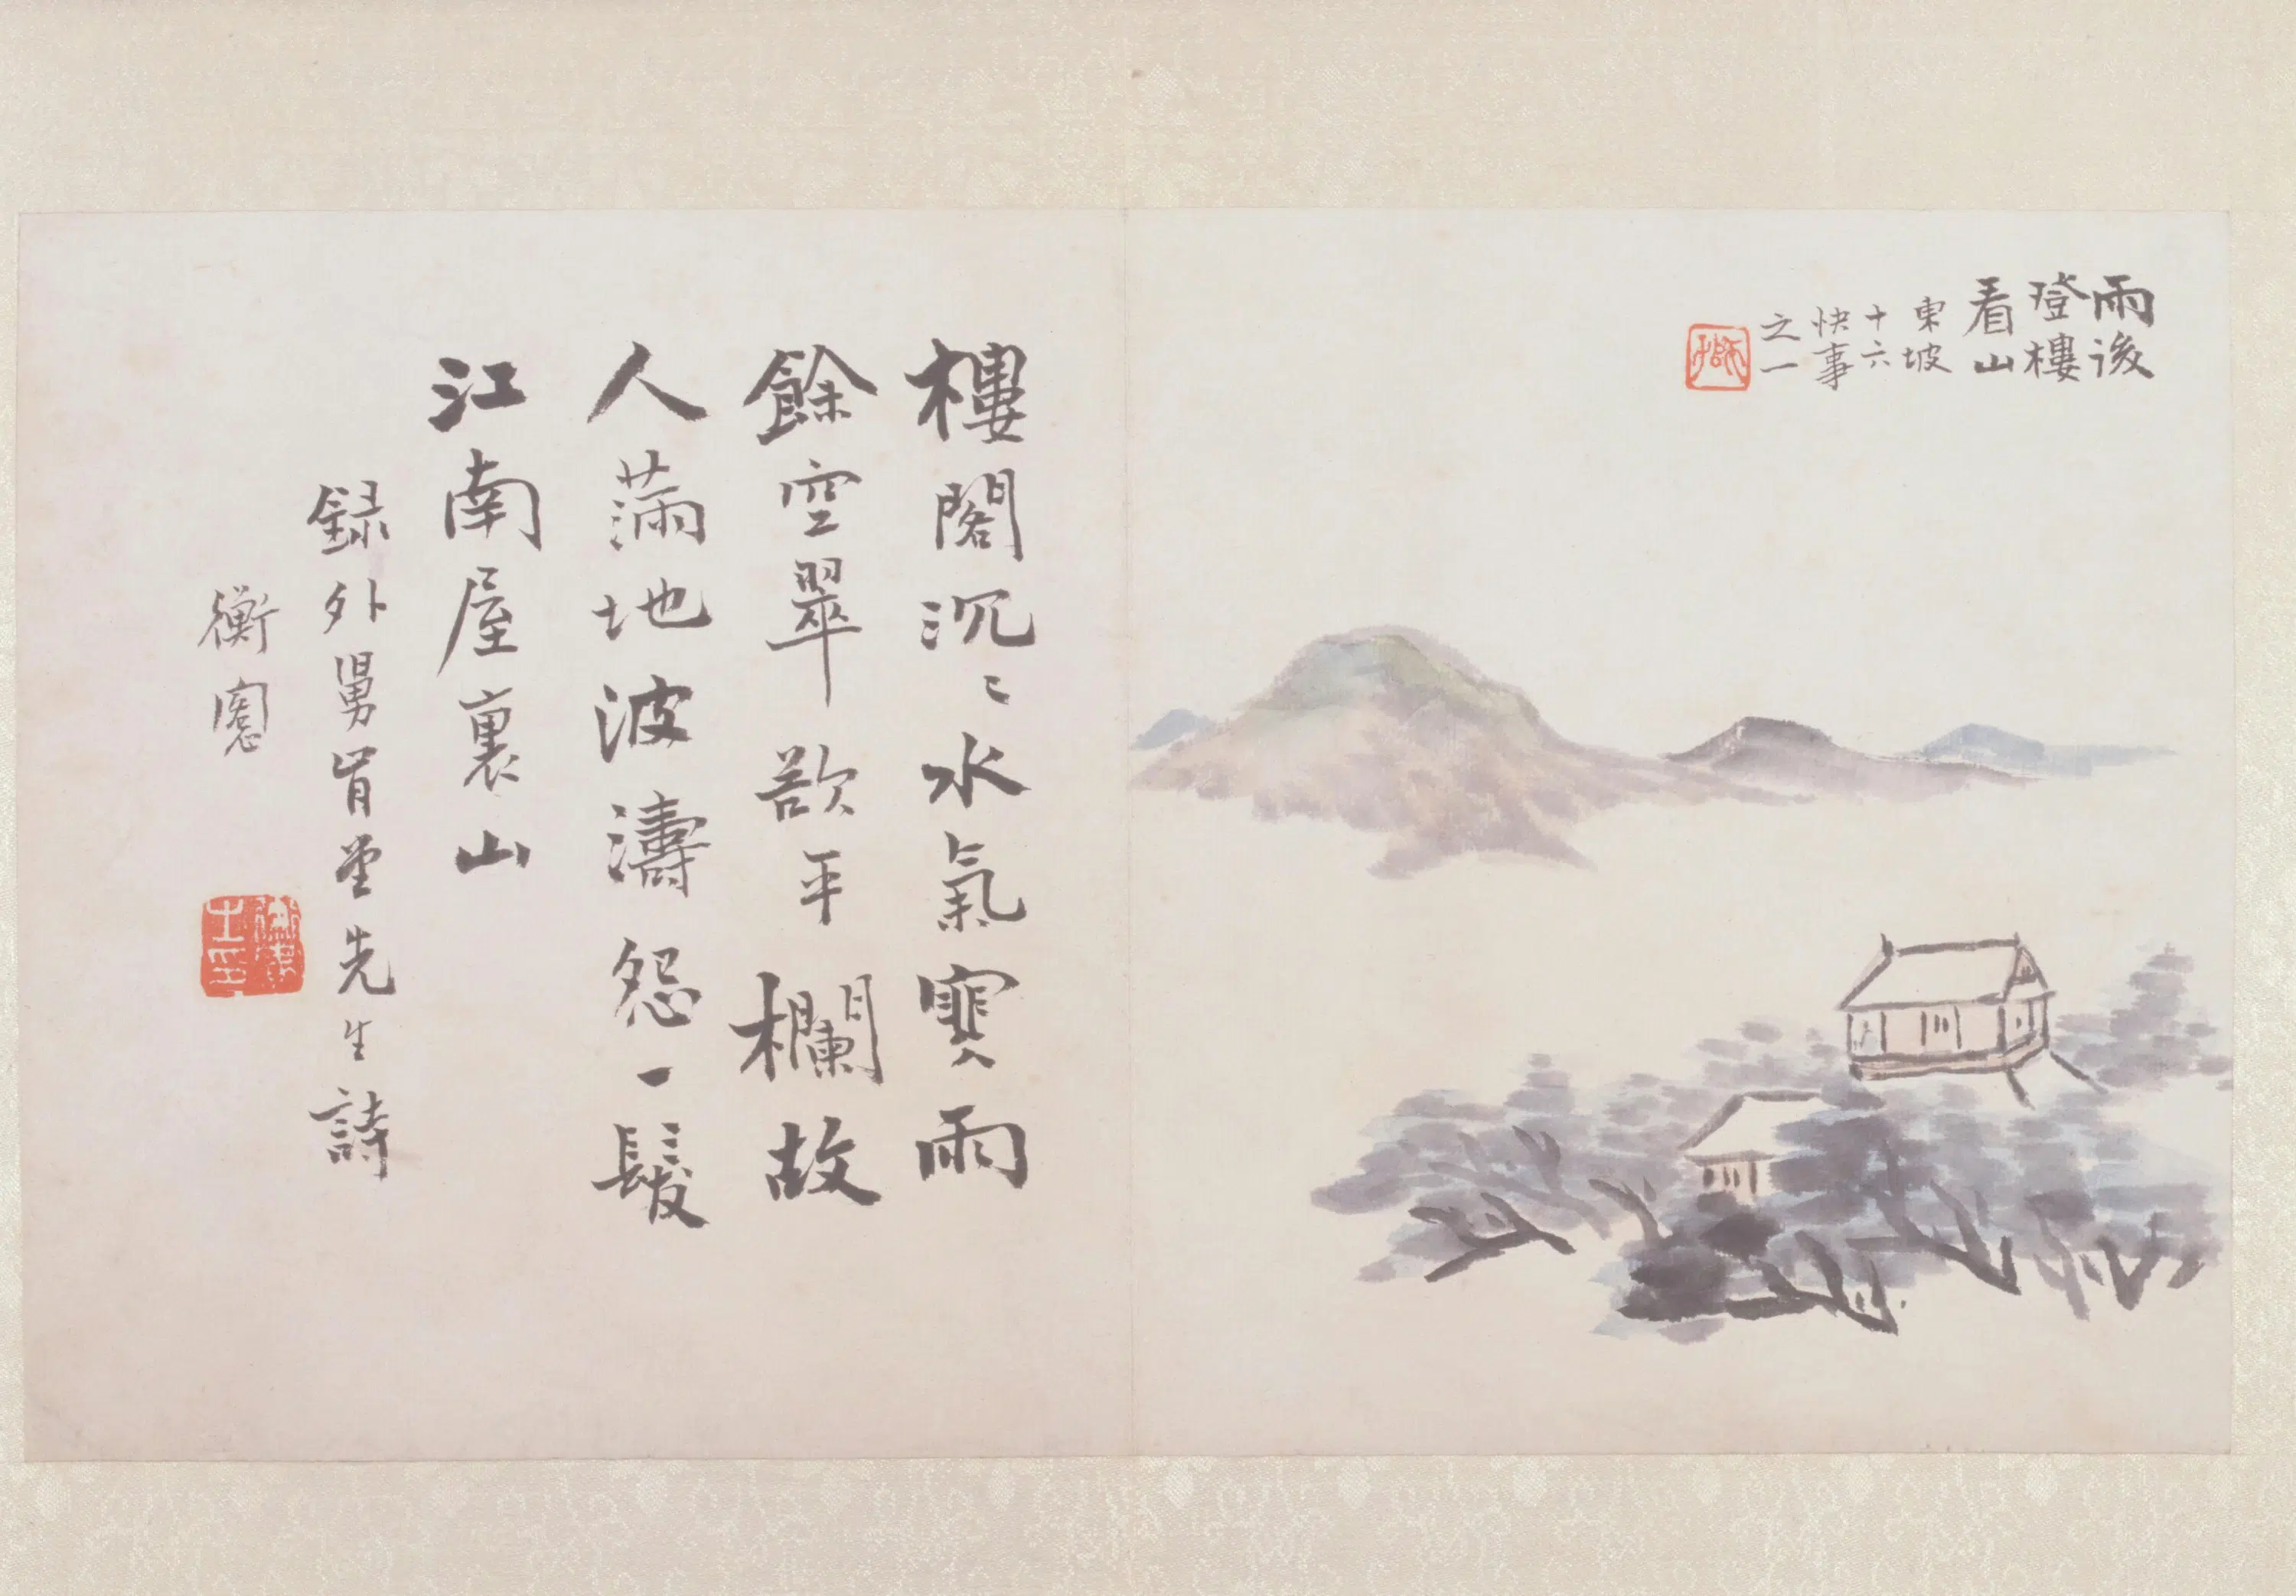 雨後
登樓
看山
東坡
十六
快事
之一
樓閣沉〻水氣寒雨
餘空翠欲平欄故
人滿地波濤怨一髮
江南屋裏山
録外舅肎堂先生詩
衡愙